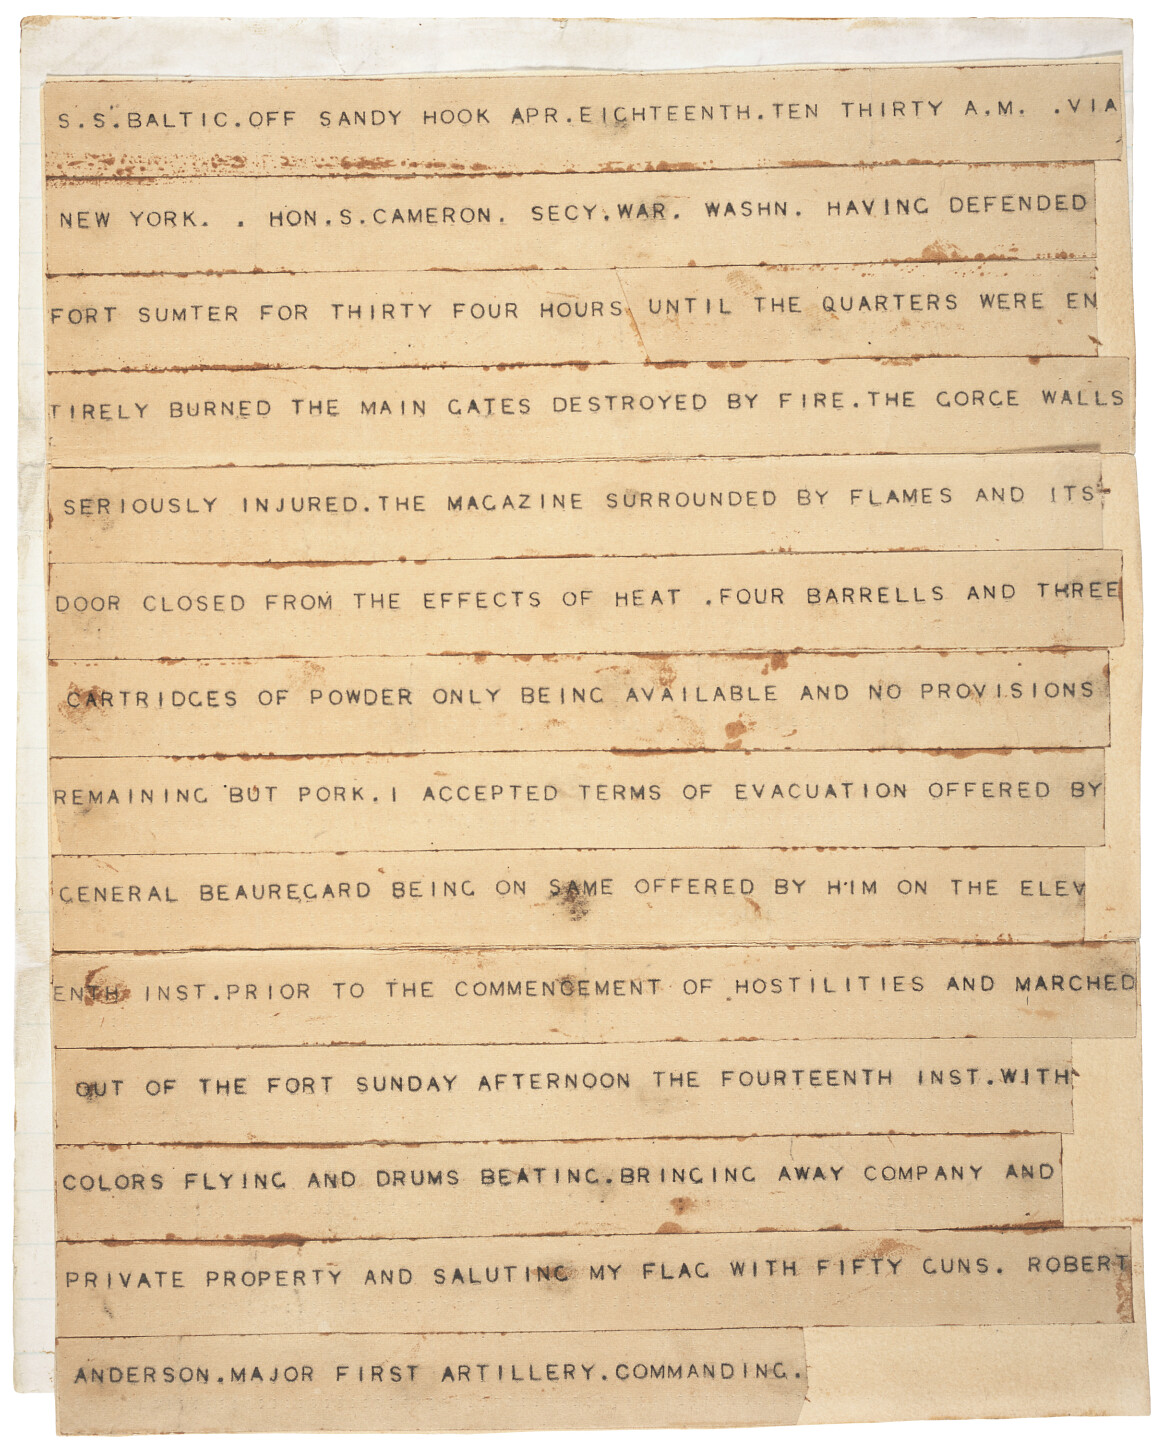 S.S.BALTIC.OFF SANDY HOOK APR.EIGHTEENTH.TEN THIRTY A.M. .VIA
NEW YORK. . HON.S.CAMERON. SECY.WAR. WASHN. HAVING DEFENDED
FORT SUMTER FOR THIRTY FOUR HOURS UNTIL THE QUARTERS WERE EN
TIRELY BURNED THE MAIN GATES DESTROYED BY FIRE.THE GORGE WALLS
SERIOUSLY INJURED.THE MAGAZINE SURROUNDED BY FLAMES AND ITS
DOOR CLOSED FROM THE EFFECTS OF HEAT .FOUR BARRELLS AND THREE
CARTRIDGES OF POWDER ONLY BEING AVAILABLE AND NO PROVISIONS
REMAINING BUT PORK.I ACCEPTED TERMS OF EVACUATION OFFERED BY
GENERAL BEAUREGARD BEING ON SAME OFFERED BY HIM ON THE ELEV
ENTH INST.PRIOR TO THE COMMENCEMENT OF HOSTILITIES AND MARCHED
OUT OF THE FORT SUNDAY AFTERNOON THE FOURTEENTH INST.WITH
COLORS FLYING AND DRUMS BEATING.BRINGING AWAY COMPANY AND
PRIVATE PROPERTY AND SALUTING MY FLAG WITH FIFTY GUNS. ROBERT
ANDERSON.MAJOR FIRST ARTILLERY.COMMANDING.